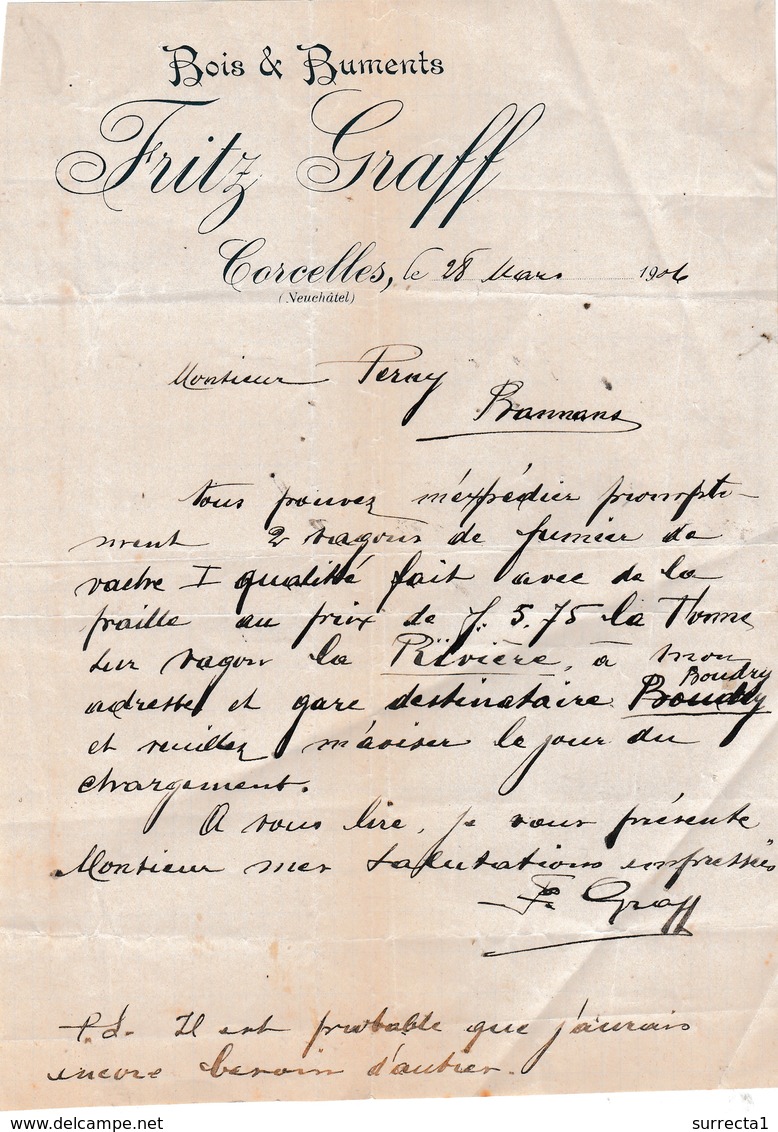 Bois & Buments
Fritz Graff
Corcelles, le 28 Mars 1906
(Neuchâtel)
Monsieur Perny
Bannans
Vous pouvez m'expédier prompte-
ment 2 vagons de fumier de
vache I qualité fait avec de la
paille au prix de f. 5.75 la Tonne
sur vagon la Rivière, à mon
Boudry
adresse et gare destinataire Boudry
et veuillez m'aviser le jour du
chargement.
A vous lire, je vous présente
Monsieur mes salutations empressées
F. Graff
P.S. Il est probable que j'aurais
encore besoin d'autres.
surrecta1
www.delcampe.net